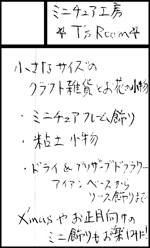 ミニチュア工房
☆ T's Room ☆
小さなサイズの
クラフト雑貨とお花の小物
・ミニチュアフレーム飾り
・粘土小物
・ドライ&プリザーブドフラワー
アイアンベースから
リース飾りまで
Xmasやお正月向けの
ミニ飾りもお楽しみに!